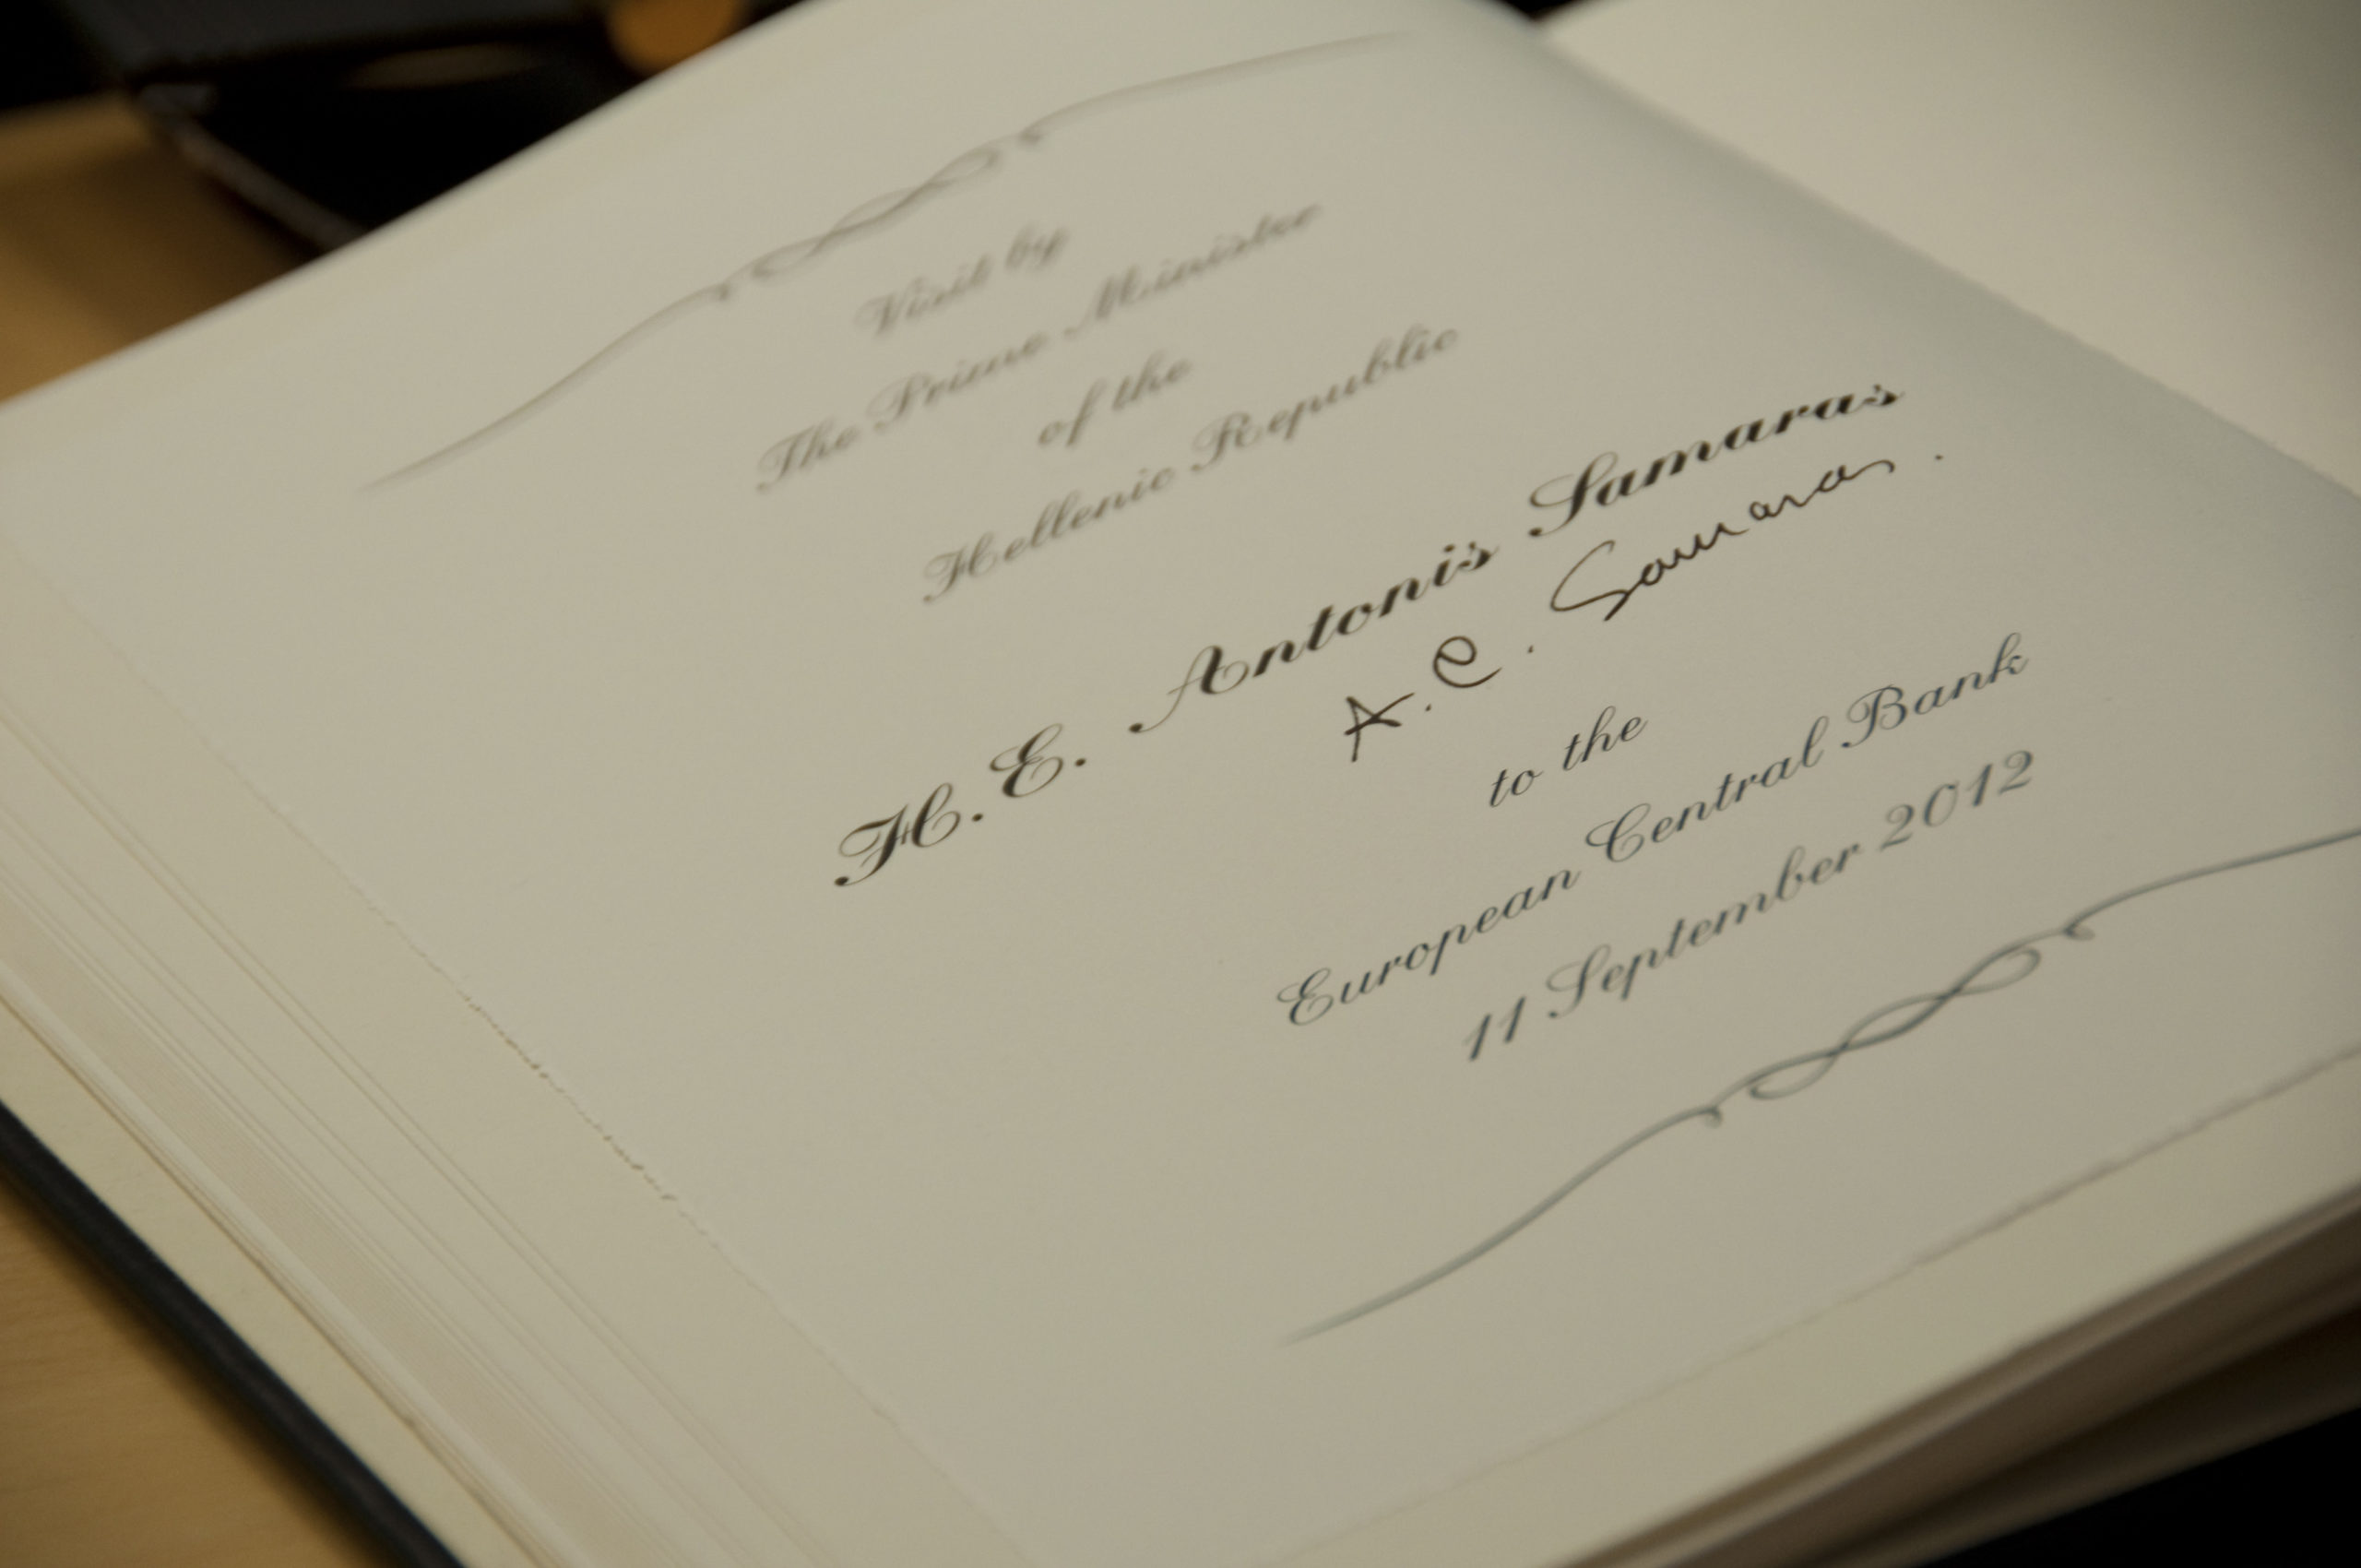 Visit by
The Prime Minister
of the
Hellenic Republic
H.E. Antonis Samaras
A. C. Samaras.
to the
European Central Bank
11 September 2012